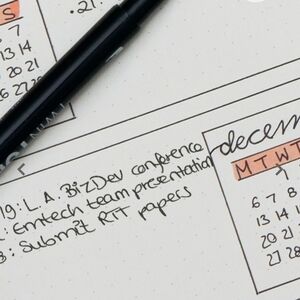 S
6 7
13 14
20 21
26 27 28
• 21:
19: L.A. BizDev conference
: Emtech team presentation
3: Submit RTT papers
decem
M T W T
6 7 8
13 14 15
20 21 22
27 28